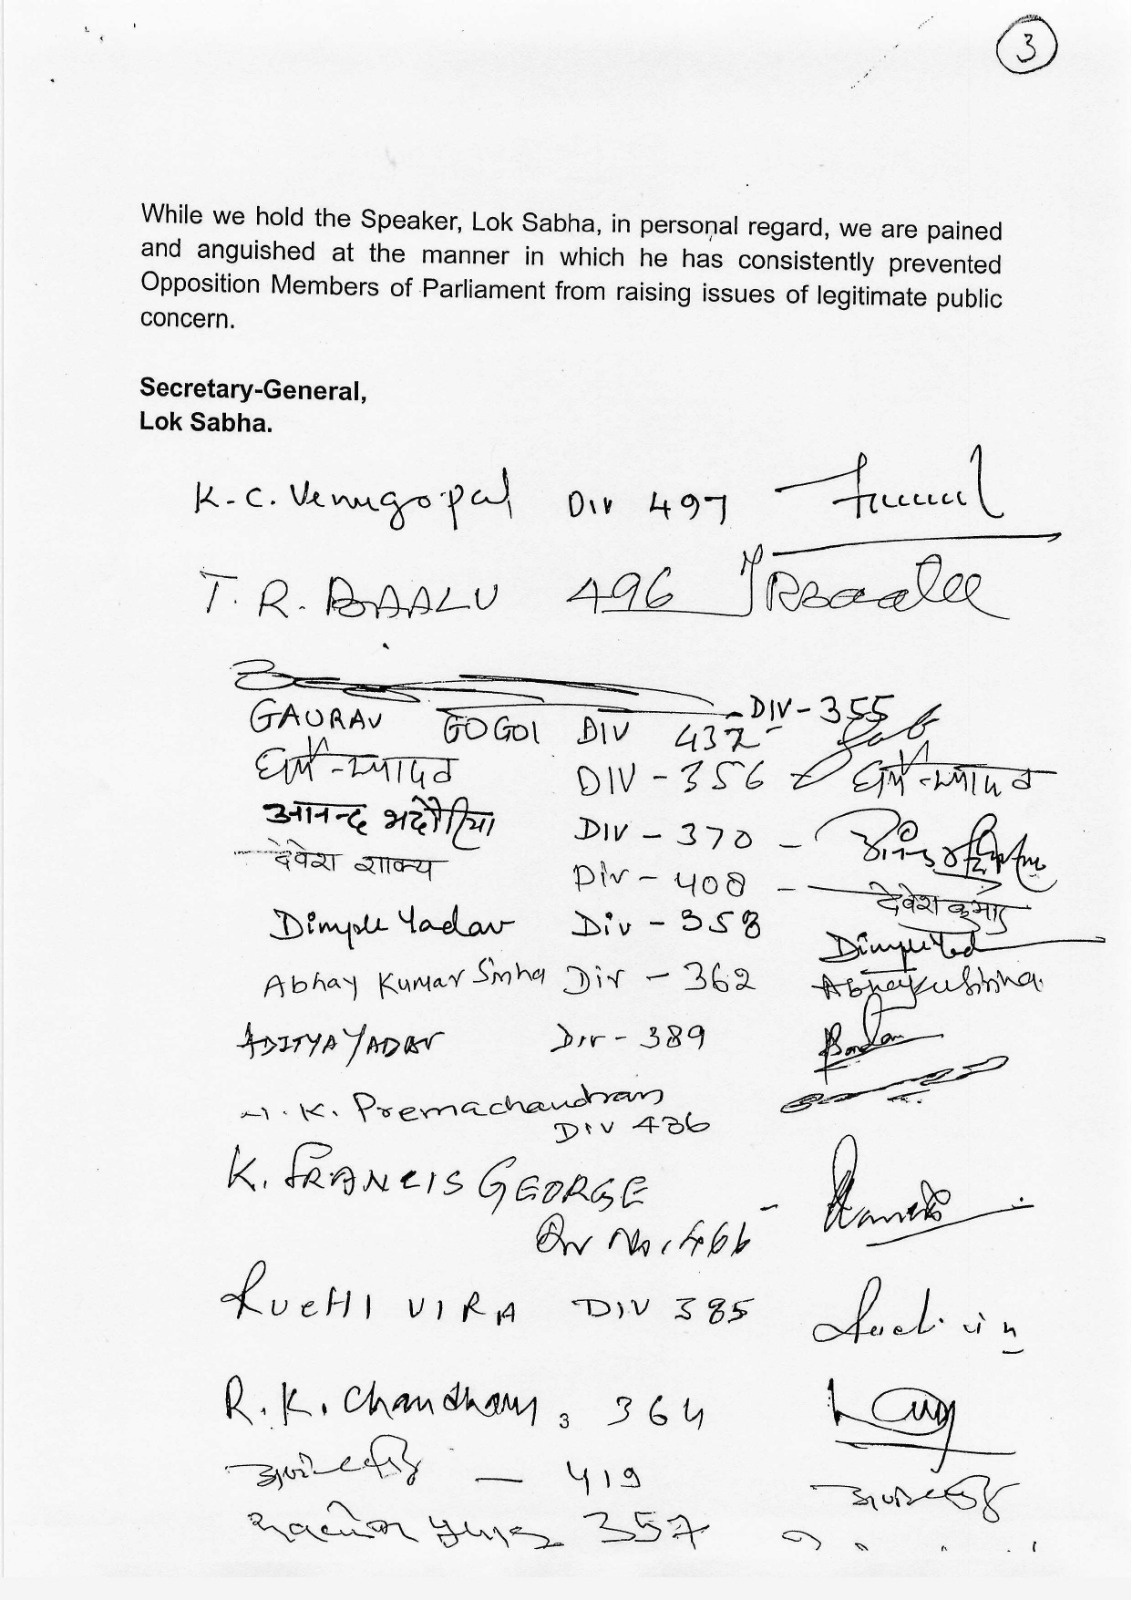 3
While we hold the Speaker, Lok Sabha, in personal regard, we are pained
and anguished at the manner in which he has consistently prevented
Opposition Members of Parliament from raising issues of legitimate public
concern.
Secretary-General,
Lok Sabha.
K. C. Venugopal Div 497
T. R. BAALU 496 TRBaalu
DIV - 355
GAURAV GOGOI DIV 432
धर्मेन्द्र यादव DIV - 356 धर्मेन्द्र यादव
आनन्द भदौरिया DIV - 370 -
देवेश शाक्य Div - 408 - देवेश कुमार
Dimple Yadav Div - 358 Dimple Yad
Abhay Kumar Sinha Div - 362 Abhay Ku Sinha
ADITYA YADAV Div - 389
N. K. Premachandran
DIV 436
K. FRANCIS GEORGE -
Div No. 466
RUCHI VIRA DIV 385 Ruchi Vir
R. K. Chaudhary, 364
— 419
357